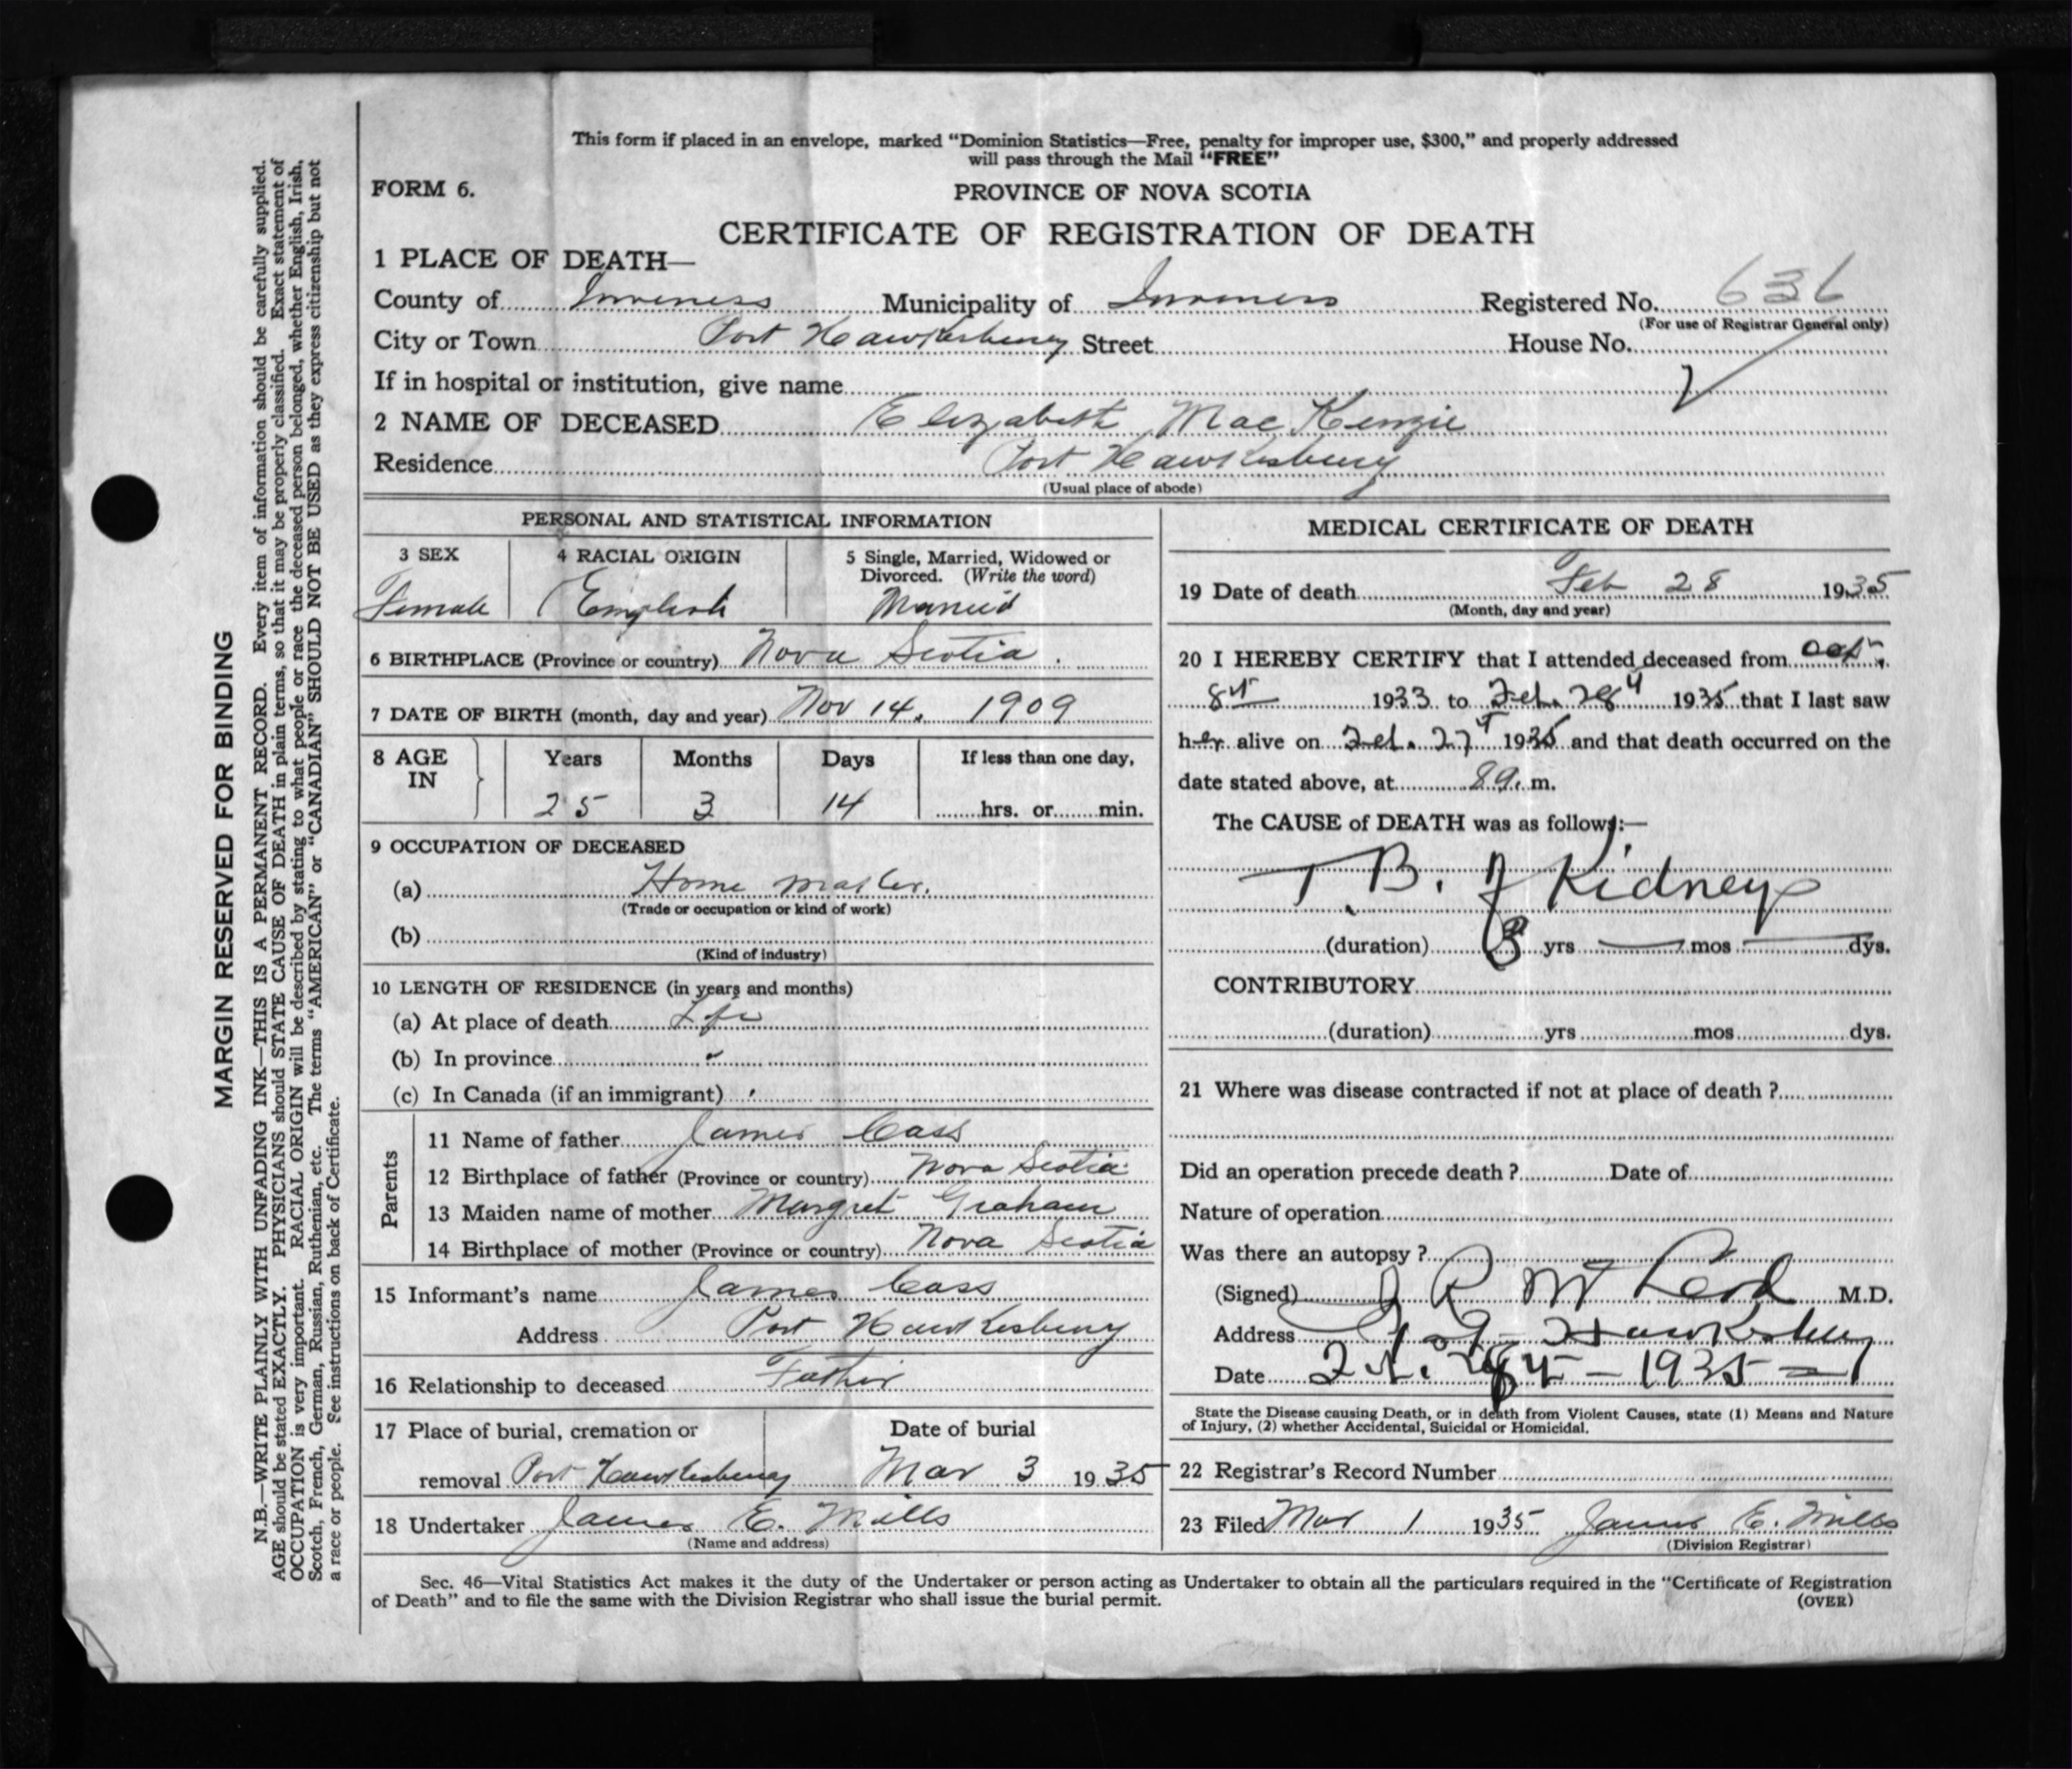 This form if placed in an envelope, marked "Dominion Statistics—Free, penalty for improper use, $300," and properly addressed
will pass through the Mail "FREE"
FORM 6.
PROVINCE OF NOVA SCOTIA
CERTIFICATE OF REGISTRATION OF DEATH
1 PLACE OF DEATH—
County of Inverness Municipality of Inverness Registered No. 636
(For use of Registrar General only)
City or Town Port Hawkesbury Street House No.
If in hospital or institution, give name
2 NAME OF DECEASED Elizabeth MacKenzie
Residence Port Hawkesbury
(Usual place of abode)
PERSONAL AND STATISTICAL INFORMATION
3 SEX
Female
4 RACIAL ORIGIN
English
5 Single, Married, Widowed or
Divorced. (Write the word)
Married
6 BIRTHPLACE (Province or country) Nova Scotia.
7 DATE OF BIRTH (month, day and year) Nov 14. 1909
8 AGE
IN
Years
25
Months
3
Days
14
If less than one day,
hrs. or min.
9 OCCUPATION OF DECEASED
(a) Home maker.
(Trade or occupation or kind of work)
(b)
(Kind of industry)
10 LENGTH OF RESIDENCE (in years and months)
(a) At place of death Life
(b) In province "
(c) In Canada (if an immigrant) '
Parents
11 Name of father James Cass
12 Birthplace of father (Province or country) Nova Scotia
13 Maiden name of mother Margret Graham
14 Birthplace of mother (Province or country) Nova Scotia
15 Informant's name James Cass
Address Port Hawkesbury
16 Relationship to deceased Father
17 Place of burial, cremation or
removal Port Hawkesbury
Date of burial
Mar 3 1935
18 Undertaker James E. Mills
(Name and address)
MEDICAL CERTIFICATE OF DEATH
19 Date of death Feb 28 1935
(Month, day and year)
20 I HEREBY CERTIFY that I attended deceased from
8th 1933 to Feb. 28th 1935 that I last saw
her alive on Feb. 27th 1935 and that death occurred on the
date stated above, at 8 a. m.
The CAUSE of DEATH was as follows:—
T B. of Kidneys
(duration) yrs mos dys.
CONTRIBUTORY
(duration) yrs mos dys.
21 Where was disease contracted if not at place of death ?
Did an operation precede death ? Date of
Nature of operation
Was there an autopsy ?
(Signed) J R McLeod M.D.
Address Port Hawkesbury
Date Feb. 28th - 1935
State the Disease causing Death, or in death from Violent Causes, state (1) Means and Nature
of Injury, (2) whether Accidental, Suicidal or Homicidal.
22 Registrar's Record Number
23 Filed Mar 1 1935 James E. Mills
(Division Registrar)
Sec. 46—Vital Statistics Act makes it the duty of the Undertaker or person acting as Undertaker to obtain all the particulars required in the "Certificate of Registration
of Death" and to file the same with the Division Registrar who shall issue the burial permit.
(OVER)
MARGIN RESERVED FOR BINDING
N.B.—WRITE PLAINLY WITH UNFADING INK—THIS IS A PERMANENT RECORD. Every item of information should be carefully supplied.
AGE should be stated EXACTLY. PHYSICIANS should STATE CAUSE OF DEATH in plain terms, so that it may be properly classified. Exact statement of
OCCUPATION is very important. RACIAL ORIGIN will be described by stating to what people or race the deceased person belonged, whether English, Irish,
Scotch, French, German, Russian, Ruthenian, etc. The terms "AMERICAN" or "CANADIAN" SHOULD NOT BE USED as they express citizenship but not
a race or people. See instructions on back of Certificate.